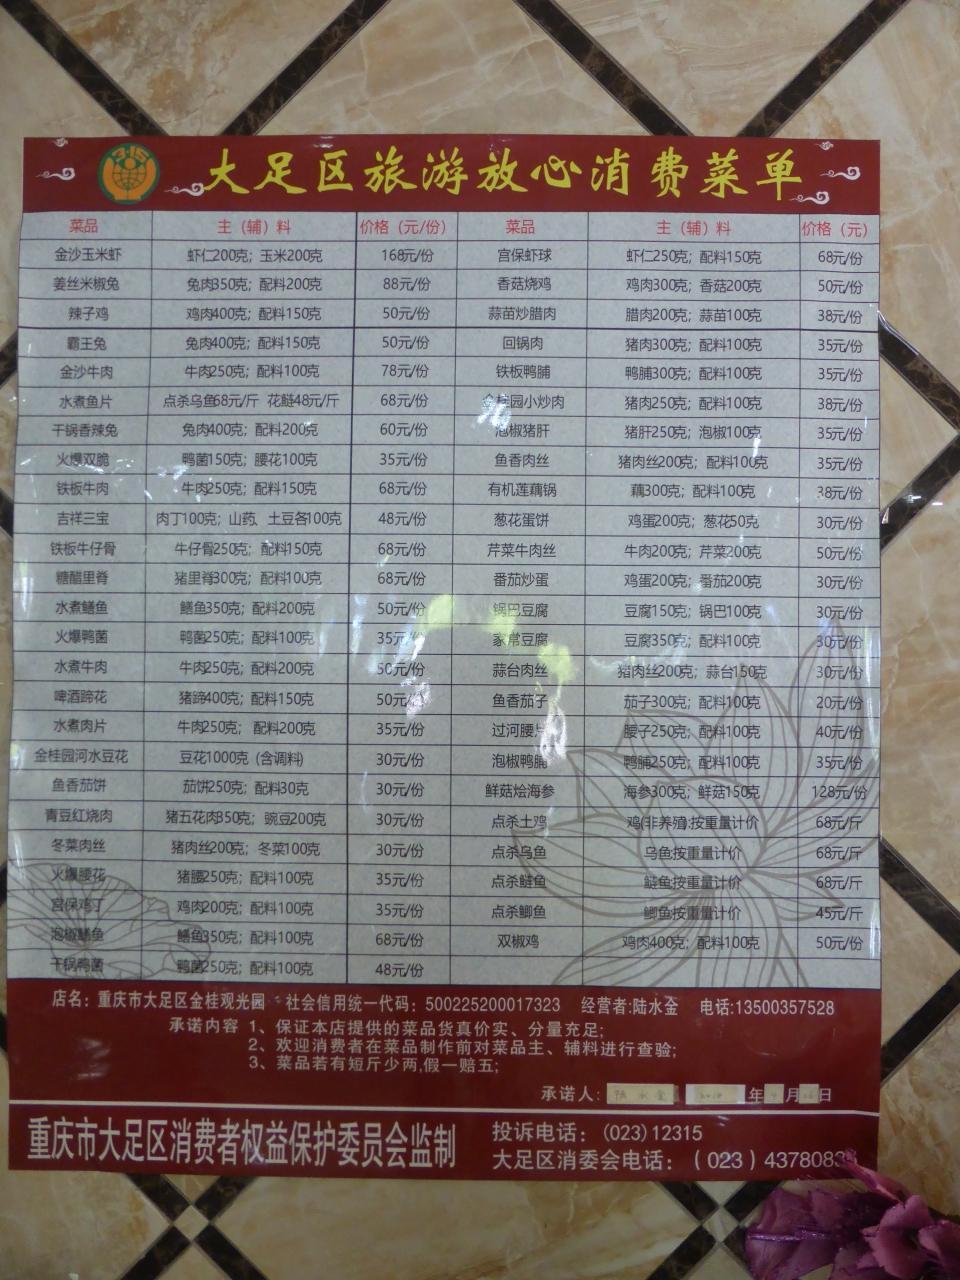 315
大足区旅游放心消费菜单
菜品 主（辅）料 价格（元/份） 菜品 主（辅）料 价格（元）
金沙玉米虾 虾仁200克；玉米200克 168元/份 宫保虾球 虾仁250克；配料150克 68元/份
姜丝米椒兔 兔肉350克；配料200克 88元/份 香菇烧鸡 鸡肉300克；香菇200克 50元/份
辣子鸡 鸡肉400克；配料150克 50元/份 蒜苗炒腊肉 腊肉200克；蒜苗100克 38元/份
霸王兔 兔肉400克；配料150克 50元/份 回锅肉 猪肉300克；配料100克 35元/份
金沙牛肉 牛肉250克；配料100克 78元/份 铁板鸭脯 鸭脯300克；配料100克 35元/份
水煮鱼片 点杀乌鱼68元/斤 花鲢48元/斤 68元/份 金桂园小炒肉 猪肉250克；配料100克 38元/份
干锅香辣兔 兔肉400克；配料200克 60元/份 泡椒猪肝 猪肝250克；泡椒100克 35元/份
火爆双脆 鸭菌150克；腰花100克 35元/份 鱼香肉丝 猪肉丝200克；配料100克 35元/份
铁板牛肉 牛肉250克；配料150克 68元/份 有机莲藕锅 藕300克；配料100克 38元/份
吉祥三宝 肉丁100克；山药、土豆各100克 48元/份 葱花蛋饼 鸡蛋200克；葱花50克 30元/份
铁板牛仔骨 牛仔骨250克；配料150克 68元/份 芹菜牛肉丝 牛肉200克；芹菜200克 50元/份
糖醋里脊 猪里脊300克；配料100克 68元/份 番茄炒蛋 鸡蛋200克；番茄200克 30元/份
水煮鳝鱼 鳝鱼350克；配料200克 50元/份 锅巴豆腐 豆腐150克；锅巴100克 30元/份
火爆鸭菌 鸭菌250克；配料100克 35元/份 家常豆腐 豆腐350克；配料100克 30元/份
水煮牛肉 牛肉250克；配料200克 50元/份 蒜台肉丝 猪肉丝200克；蒜台150克 30元/份
啤酒蹄花 猪蹄400克；配料150克 50元/份 鱼香茄子 茄子300克；配料100克 20元/份
水煮肉片 牛肉250克；配料200克 35元/份 过河腰片 腰子250克；配料100克 40元/份
金桂园河水豆花 豆花1000克（含调料） 30元/份 泡椒鸭脯 鸭脯250克；配料100克 35元/份
鱼香茄饼 茄饼250克；配料30克 30元/份 鲜菇烩海参 海参300克；鲜菇150克 128元/份
青豆红烧肉 猪五花肉350克；豌豆200克 30元/份 点杀土鸡 鸡(非养殖):按重量计价 68元/斤
冬菜肉丝 猪肉丝200克；冬菜100克 30元/份 点杀乌鱼 乌鱼按重量计价 68元/斤
火爆腰花 猪腰250克；配料100克 35元/份 点杀鲢鱼 鲢鱼按重量计价 68元/斤
宫保鸡丁 鸡肉200克；配料100克 35元/份 点杀鲫鱼 鲫鱼按重量计价 45元/斤
泡椒鳝鱼 鳝鱼350克；配料100克 68元/份 双椒鸡 鸡肉400克；配料100克 50元/份
干锅鸭菌 鸭菌250克；配料100克 48元/份
店名：重庆市大足区金桂观光园 社会信用统一代码：500225200017323 经营者:陆水金 电话:13500357528
承诺内容 1、保证本店提供的菜品货真价实、分量充足;
2、欢迎消费者在菜品制作前对菜品主、辅料进行查验;
3、菜品若有短斤少两,假一赔五;
承诺人： 陆水金 年 月 日
重庆市大足区消费者权益保护委员会监制
投诉电话：(023)12315
大足区消委会电话：（023）4378083